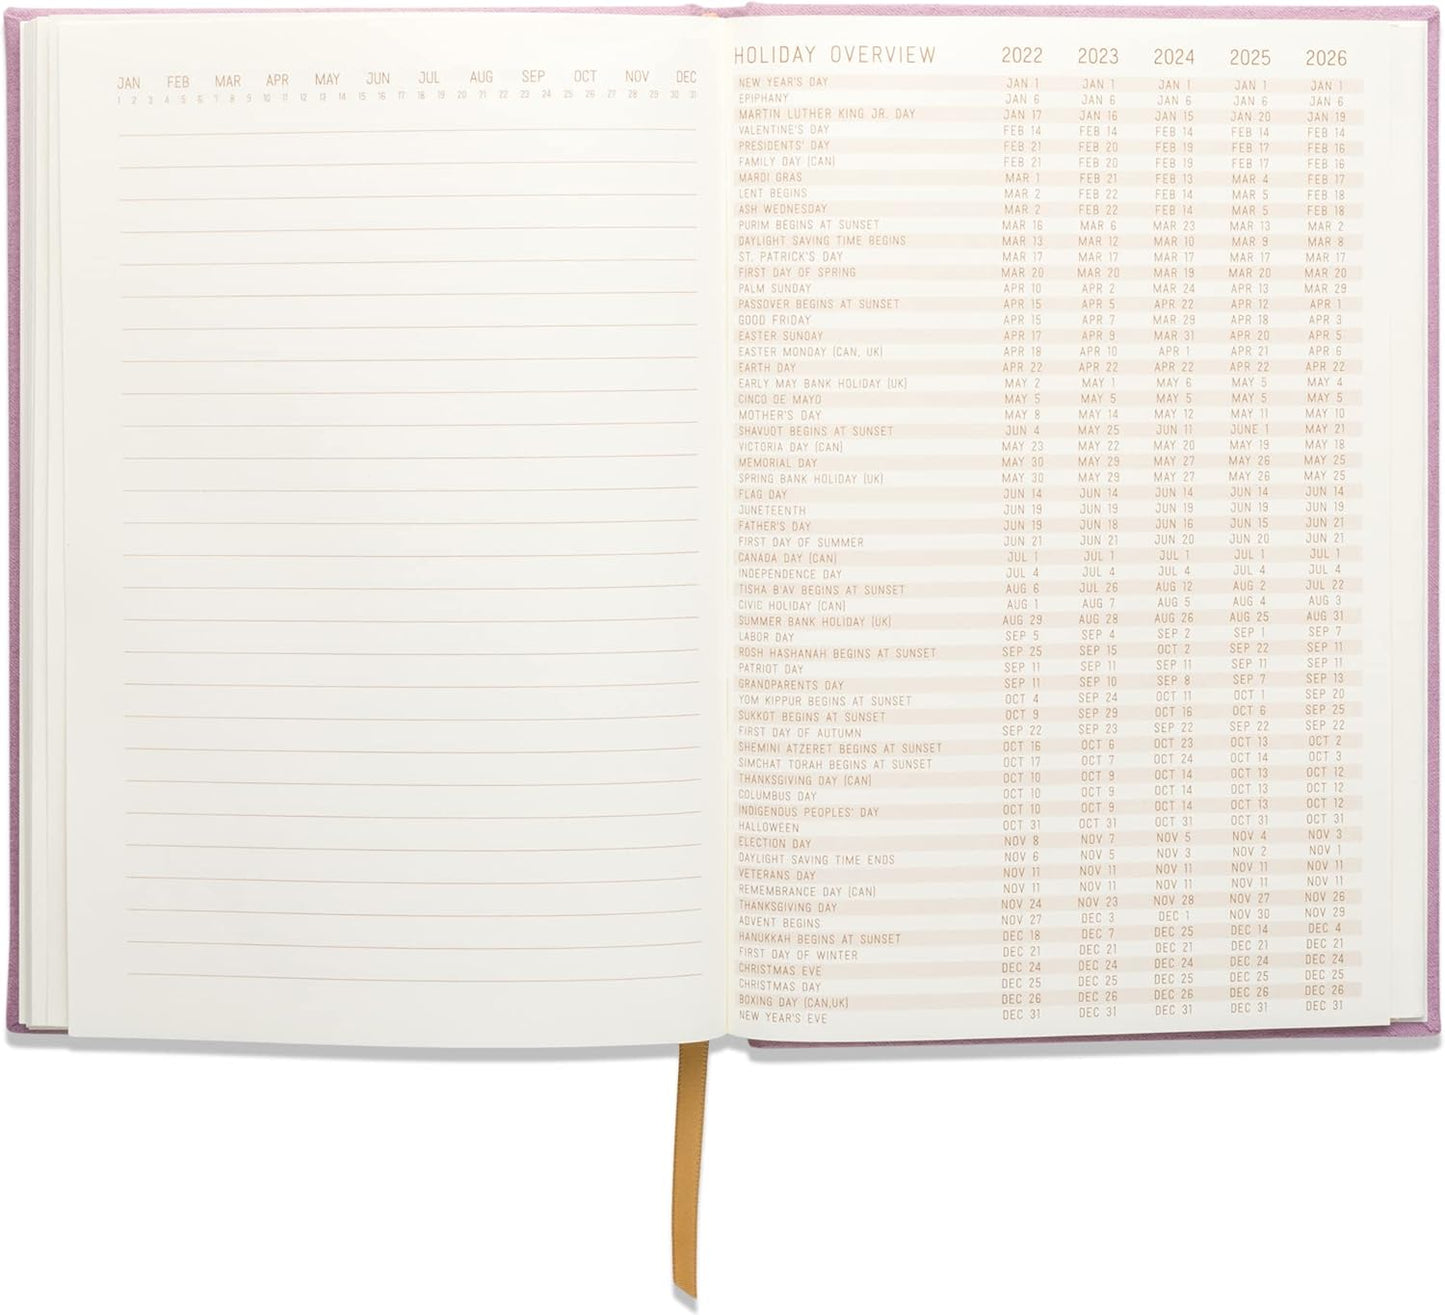 JAN FEB MAR APR MAY JUN JUL AUG SEP OCT NOV DEC
1 2 3 4 5 6 7 8 9 10 11 12 13 14 15 16 17 18 19 20 21 22 23 24 25 26 27 28 29 30 31
HOLIDAY OVERVIEW 2022 2023 2024 2025 2026
NEW YEAR'S DAY JAN 1 JAN 1 JAN 1 JAN 1 JAN 1
EPIPHANY JAN 6 JAN 6 JAN 6 JAN 6 JAN 6
MARTIN LUTHER KING JR. DAY JAN 17 JAN 16 JAN 15 JAN 20 JAN 19
VALENTINE'S DAY FEB 14 FEB 14 FEB 14 FEB 14 FEB 14
PRESIDENTS' DAY FEB 21 FEB 20 FEB 19 FEB 17 FEB 16
FAMILY DAY (CAN) FEB 21 FEB 20 FEB 19 FEB 17 FEB 16
MARDI GRAS MAR 1 FEB 21 FEB 13 MAR 4 FEB 17
LENT BEGINS MAR 2 FEB 22 FEB 14 MAR 5 FEB 18
ASH WEDNESDAY MAR 2 FEB 22 FEB 14 MAR 5 FEB 18
PURIM BEGINS AT SUNSET MAR 16 MAR 6 MAR 23 MAR 13 MAR 2
DAYLIGHT SAVING TIME BEGINS MAR 13 MAR 12 MAR 10 MAR 9 MAR 8
ST. PATRICK'S DAY MAR 17 MAR 17 MAR 17 MAR 17 MAR 17
FIRST DAY OF SPRING MAR 20 MAR 20 MAR 19 MAR 20 MAR 20
PALM SUNDAY APR 10 APR 2 MAR 24 APR 13 MAR 29
PASSOVER BEGINS AT SUNSET APR 15 APR 5 APR 22 APR 12 APR 1
GOOD FRIDAY APR 15 APR 7 MAR 29 APR 18 APR 3
EASTER SUNDAY APR 17 APR 9 MAR 31 APR 20 APR 5
EASTER MONDAY (CAN, UK) APR 18 APR 10 APR 1 APR 21 APR 6
EARTH DAY APR 22 APR 22 APR 22 APR 22 APR 22
EARLY MAY BANK HOLIDAY (UK) MAY 2 MAY 1 MAY 6 MAY 5 MAY 4
CINCO DE MAYO MAY 5 MAY 5 MAY 5 MAY 5 MAY 5
MOTHER'S DAY MAY 8 MAY 14 MAY 12 MAY 11 MAY 10
SHAVUOT BEGINS AT SUNSET JUN 4 MAY 25 JUN 11 JUNE 1 MAY 21
VICTORIA DAY (CAN) MAY 23 MAY 22 MAY 20 MAY 19 MAY 18
MEMORIAL DAY MAY 30 MAY 29 MAY 27 MAY 26 MAY 25
SPRING BANK HOLIDAY (UK) MAY 30 MAY 29 MAY 27 MAY 26 MAY 25
FLAG DAY JUN 14 JUN 14 JUN 14 JUN 14 JUN 14
JUNETEENTH JUN 19 JUN 19 JUN 19 JUN 19 JUN 19
FATHER'S DAY JUN 19 JUN 18 JUN 16 JUN 15 JUN 21
FIRST DAY OF SUMMER JUN 21 JUN 21 JUN 20 JUN 20 JUN 21
CANADA DAY (CAN) JUL 1 JUL 1 JUL 1 JUL 1 JUL 1
INDEPENDENCE DAY JUL 4 JUL 4 JUL 4 JUL 4 JUL 4
TISHA B'AV BEGINS AT SUNSET AUG 6 JUL 26 AUG 12 AUG 2 JUL 22
CIVIC HOLIDAY (CAN) AUG 1 AUG 7 AUG 5 AUG 4 AUG 3
SUMMER BANK HOLIDAY (UK) AUG 29 AUG 28 AUG 26 AUG 25 AUG 31
LABOR DAY SEP 5 SEP 4 SEP 2 SEP 1 SEP 7
ROSH HASHANAH BEGINS AT SUNSET SEP 25 SEP 15 OCT 2 SEP 22 SEP 11
PATRIOT DAY SEP 11 SEP 11 SEP 11 SEP 11 SEP 11
GRANDPARENTS DAY SEP 11 SEP 10 SEP 8 SEP 7 SEP 13
YOM KIPPUR BEGINS AT SUNSET OCT 4 SEP 24 OCT 11 OCT 1 SEP 20
SUKKOT BEGINS AT SUNSET OCT 9 SEP 29 OCT 16 OCT 6 SEP 25
FIRST DAY OF AUTUMN SEP 22 SEP 23 SEP 22 SEP 22 SEP 22
SHEMINI ATZERET BEGINS AT SUNSET OCT 16 OCT 6 OCT 23 OCT 13 OCT 2
SIMCHAT TORAH BEGINS AT SUNSET OCT 17 OCT 7 OCT 24 OCT 14 OCT 3
THANKSGIVING DAY (CAN) OCT 10 OCT 9 OCT 14 OCT 13 OCT 12
COLUMBUS DAY OCT 10 OCT 9 OCT 14 OCT 13 OCT 12
INDIGENOUS PEOPLES' DAY OCT 10 OCT 9 OCT 14 OCT 13 OCT 12
HALLOWEEN OCT 31 OCT 31 OCT 31 OCT 31 OCT 31
ELECTION DAY NOV 8 NOV 7 NOV 5 NOV 4 NOV 3
DAYLIGHT SAVING TIME ENDS NOV 6 NOV 5 NOV 3 NOV 2 NOV 1
VETERANS DAY NOV 11 NOV 11 NOV 11 NOV 11 NOV 11
REMEMBRANCE DAY (CAN) NOV 11 NOV 11 NOV 11 NOV 11 NOV 11
THANKSGIVING DAY NOV 24 NOV 23 NOV 28 NOV 27 NOV 26
ADVENT BEGINS NOV 27 DEC 3 DEC 1 NOV 30 NOV 29
HANUKKAH BEGINS AT SUNSET DEC 18 DEC 7 DEC 25 DEC 14 DEC 4
FIRST DAY OF WINTER DEC 21 DEC 21 DEC 21 DEC 21 DEC 21
CHRISTMAS EVE DEC 24 DEC 24 DEC 24 DEC 24 DEC 24
CHRISTMAS DAY DEC 25 DEC 25 DEC 25 DEC 25 DEC 25
BOXING DAY (CAN,UK) DEC 26 DEC 26 DEC 26 DEC 26 DEC 26
NEW YEAR'S EVE DEC 31 DEC 31 DEC 31 DEC 31 DEC 31